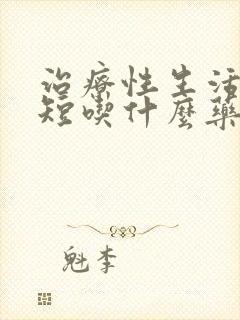 治療性生活
短喫什麼藥
魁李